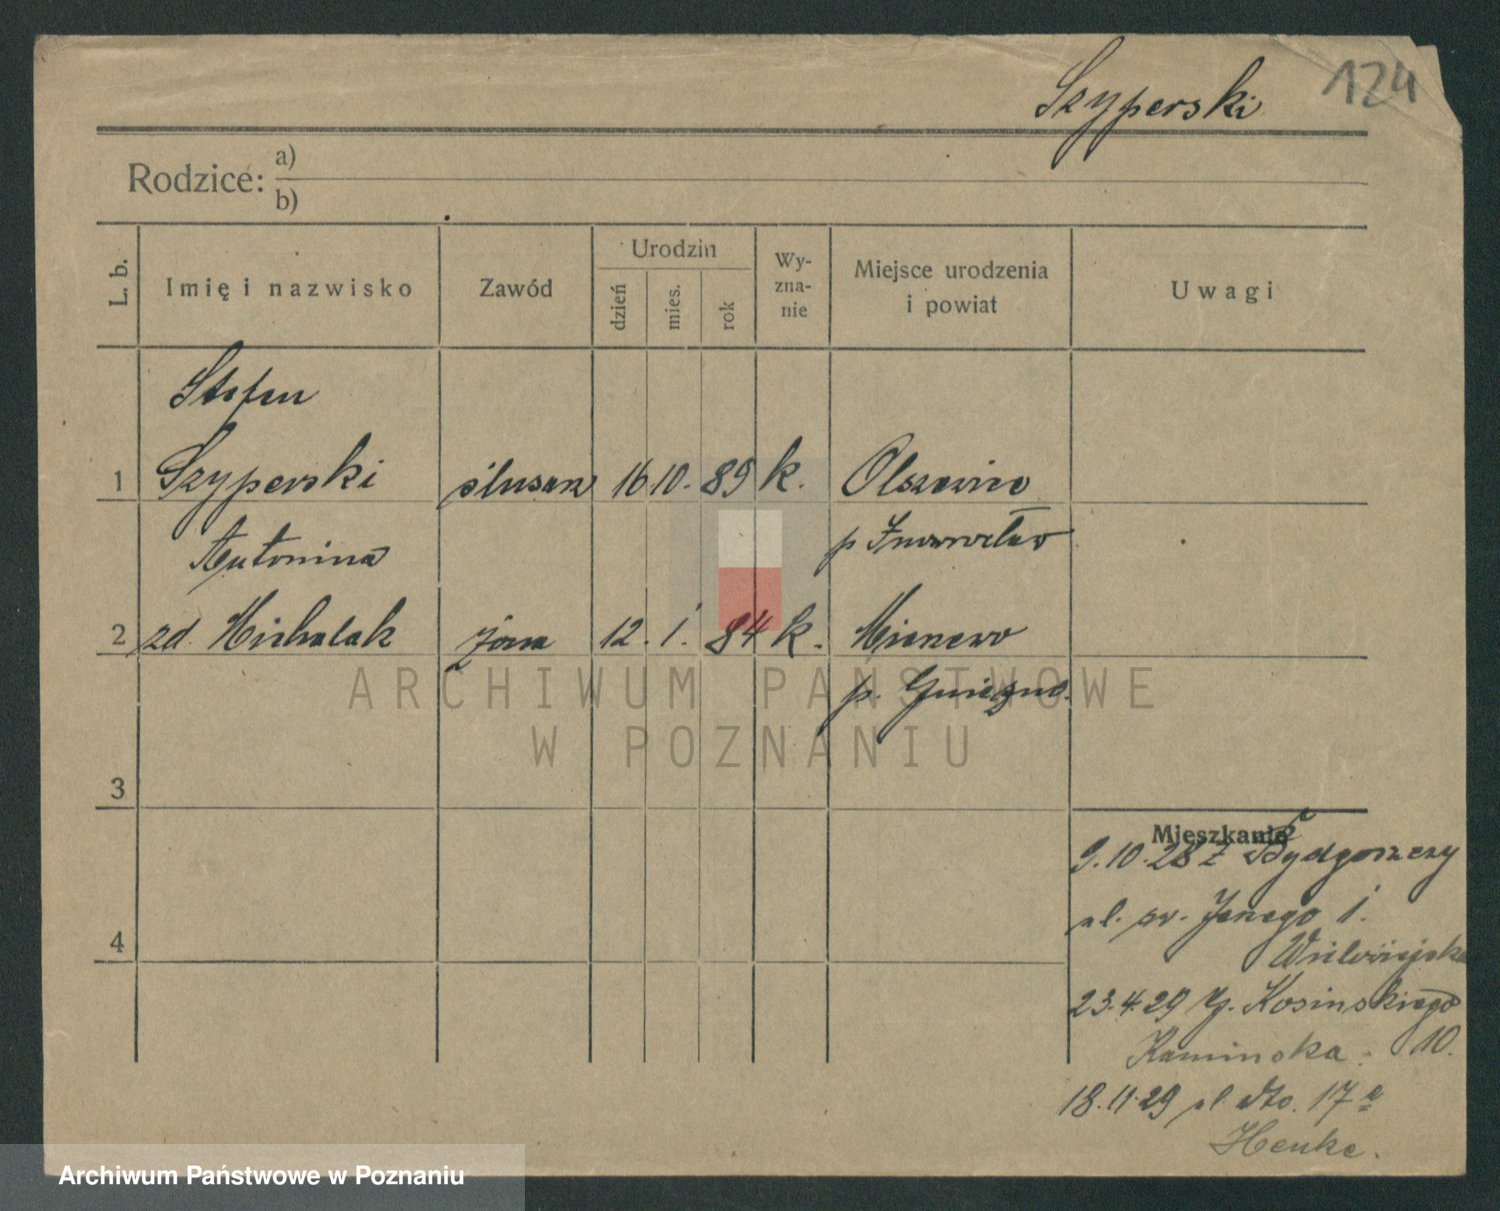 124
Szyperski
Rodzice: a)
b)
L. b.
Imię i nazwisko
Zawód
Urodzin
dzień
mies.
rok
Wy-
zna-
nie
Miejsce urodzenia
i powiat
Uwagi
Stefan
1 Szyperski ślusarz 16 10. 89 k.
p Inowrocław
Antonina
2 zd. Michalak żona 12. 1. 84 k.
p. Gniezno.
3
4
Mieszkanie
9.10.28 z Bydgoszczy
ul. św. Jana 1.
23.4.29 Kosinskiego
Kaminska. 10.
18.11.29 ul dto. 17a
Henke.
ARCHIWUM PAŃSTWOWE
W POZNANIU
Archiwum Państwowe w Poznaniu